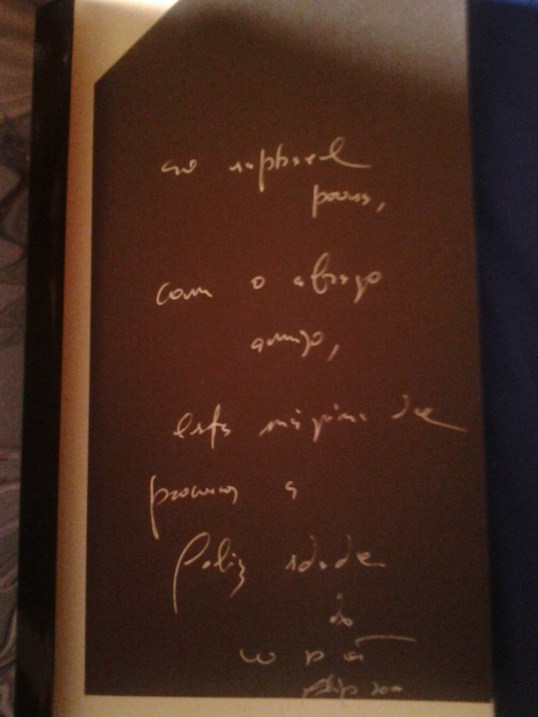 ao raphael
com o abraço
amigo,
esta máquina de
procurar a
feliz idade
do